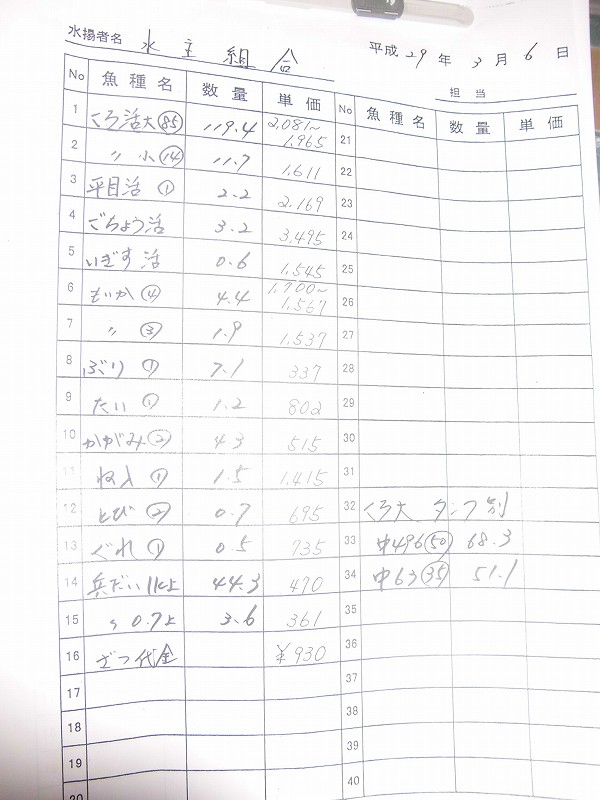 水揚者名 水主組合
平成29年3月6日
担当
No 魚種名 数量 単価
1 くろ活大(85) 119.4 2,081~1,965
2 〃 小(14) 11.7 1,611
3 平目活 (1) 2.2 2,169
4 ごちょう活 3.2 3,495
5 いぎす活 0.6 1,545
6 もいか(4) 4.4 1,700~1,567
7 〃 (3) 1.9 1,537
8 ぶり (1) 7.1 337
9 たい (1) 1.2 802
10 かがみ(2) 4.3 515
11 (1) 1.5 1,415
12 とび (2) 0.7 695
13 ぐれ (1) 0.5 735
14 兵だい1k上 44.3 470
15 〃 0.7上 3.6 361
16 ざつ代金 ¥930
17
18
19
20
No 魚種名 数量 単価
21
22
23
24
25
26
27
28
29
30
31
32 くろ大 タンク別
33 中496(50) 68.3
34 中63(35) 51.1
35
36
37
38
39
40